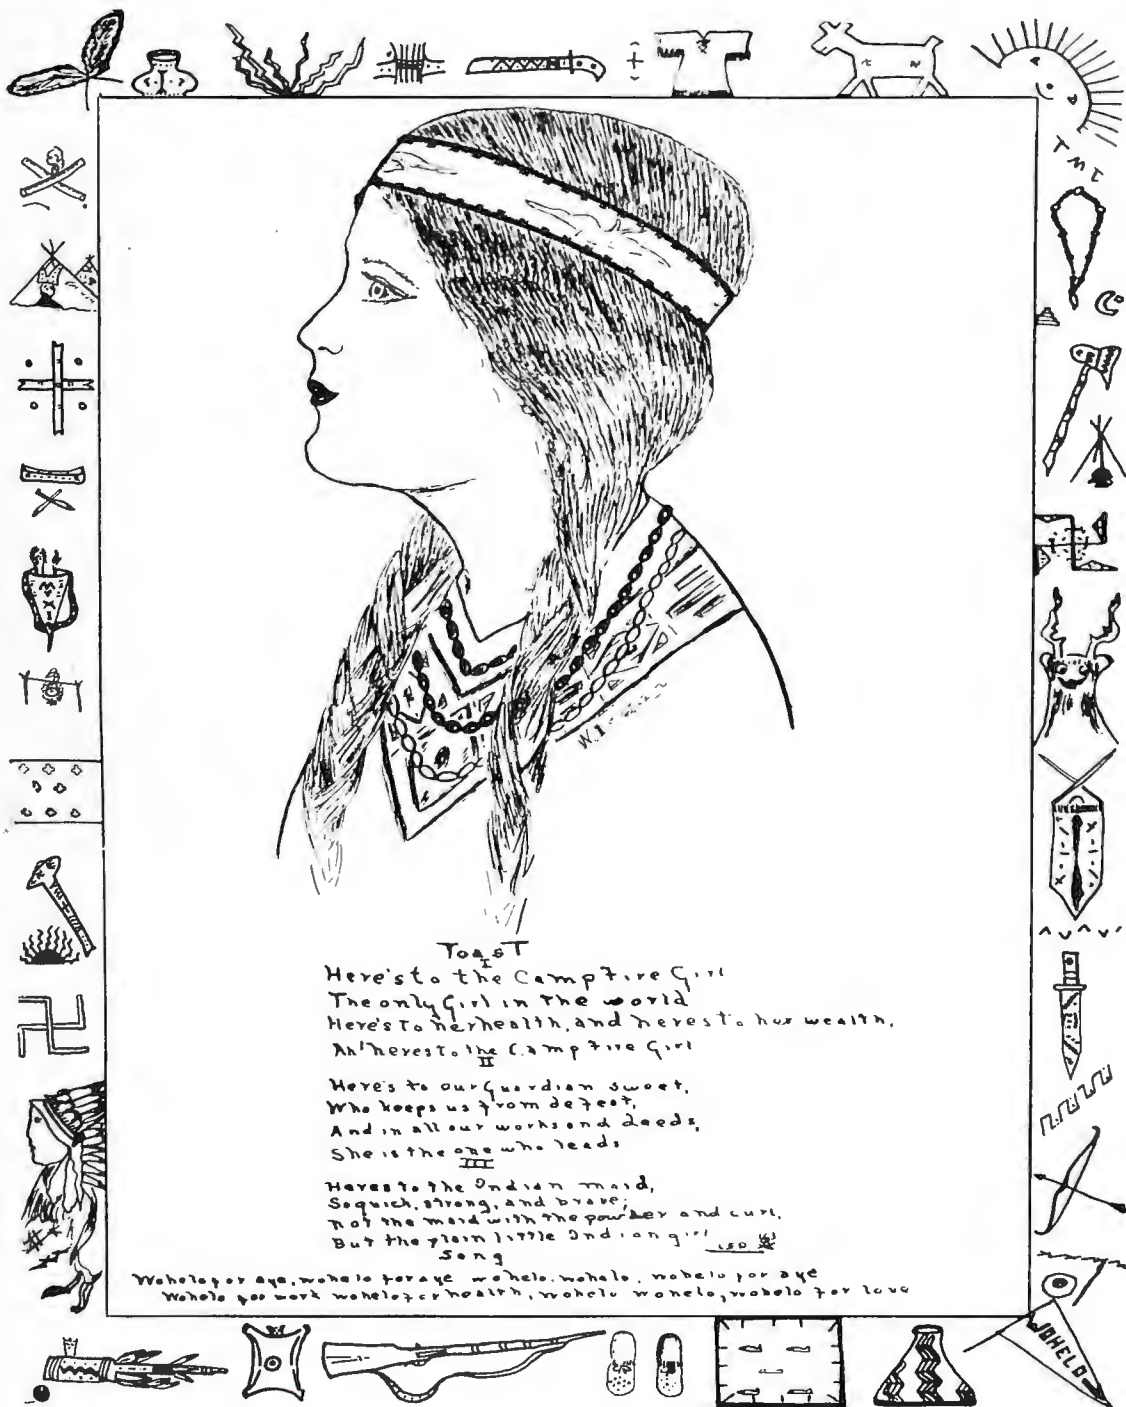 TMC
Toast
I
Here's to the Camp Fire Girl
The only Girl in the world
Here's to her health, and heres to her wealth,
An' heres to the Camp Fire Girl
II
Here's to our Guardian sweet,
Who keeps us from defeat,
And in all our works and deeds,
She is the one who leads
III
Heres to the Indian maid,
So quick, strong, and brave;
not the maid with the powder and curl,
But the plain little Indian girl
Song
Wohelo for aye, wohelo for aye wohelo. wohelo, wohelo for aye
Wohelo for work wohelo for health, wohelo wohelo, wohelo for love
WOHELO